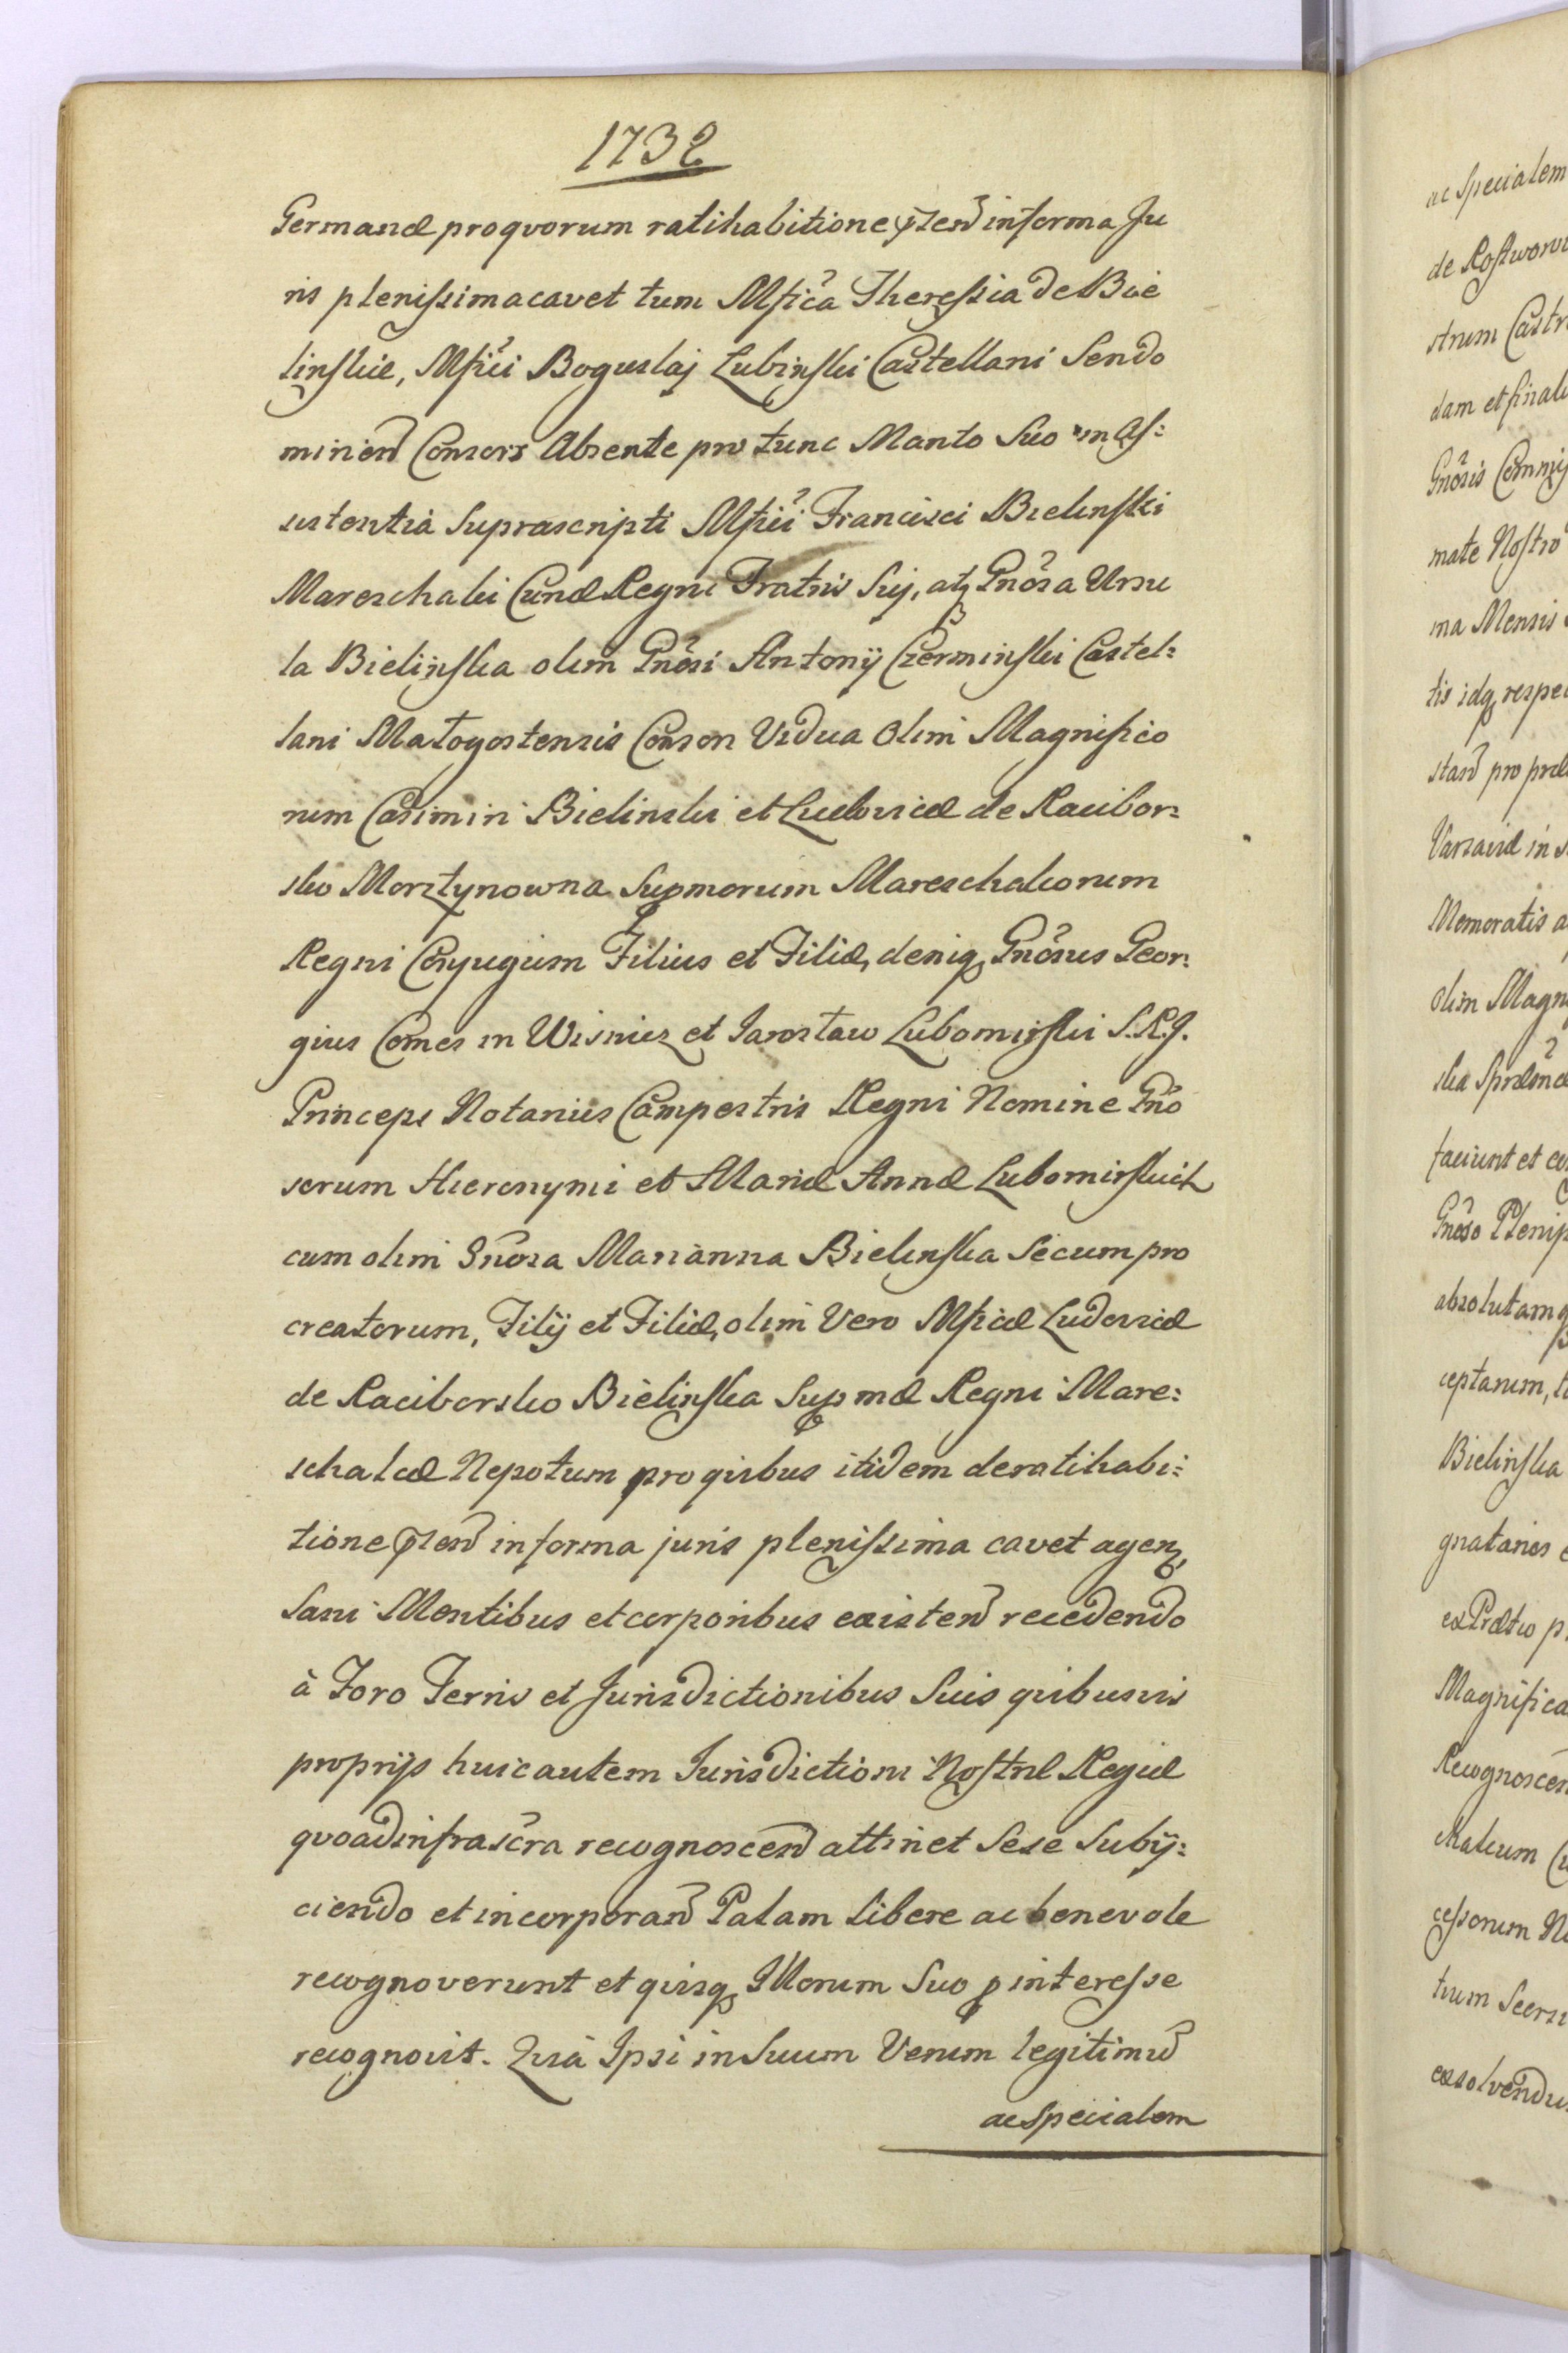 1732
Germanæ pro qvorum ratihabitione pñtẽ in forma Ju
ris plenissima cavet tum Mficã Theressia de Bie
linskie, Mfici Boguslaj Lubinski Castellani Sendo
mirieñ Consors Absente pro tunc Marito Suo in As:
sistentia Suprascripti Mfici Francisci Bielinski
Mareschalci Curiæ Regni Fratris Suj, atq Gnosa Ursu
la Bielinska olim Gnosi Antonij Czerminski Castel:
lani Małogostensis Consors Vidua Olim Magnifico
rum Casimiri Bielinski et Ludovicæ de Racibor:
sko Morsztynowna Supmorum Mareschalcorum
Regni Conjugum Filius et Filiæ, deniq Gnosus Geor:
gius Comes in Wisnicz et Jarosław Lubomirski S.R.J.
Princeps Notarius Campestris Regni Nomine Gno
sorum Hieronymi et Mariæ Annæ Lubomirskich
cum olim Gnosa Marianna Bielinska Secum pro
creatorum, Filij et Filiæ, olim Vero Mficæ Ludovicæ
de Raciborsko Bielinska Supmæ Regni Mare:
schalcæ Nepotum pro qvibus itidem de ratihabi:
tione pñtẽ in forma juris plenissima cavet ageñ,
Sani Mentibus et corporibus existeñ recedendo
à Foro Terris et Jurisdictionibus Suis qvibusvis
proprijs huic autem Jurisdictioni Nostræ Regiæ
qvoad infrascra recognosceñ attinet Sese Subij:
ciendo et incorporañ Palam Libere ac benevole
recognoverunt et qvisq Illorum Suo p interesse
recognovit. Quia Ipsi in Suum Verum legitimũ
ac Specialem
ac Specialem
de Rostworo
strum Castr
dam et final
Gnosis Commis
mate Nostro
ma Mensis
tis idq respe
stañ pro præ
Varsaviæ in
Memoratis a
olim Magn
ska Spræmæ
faciunt et co
Gnoso Plenip
absolutamq
ceptarum, t
Bielinska
gnatarios
ex Prætio p
Magnifica
Recognoscen
chalcum Cu
cessorum N
tium Seors
exsolvendu